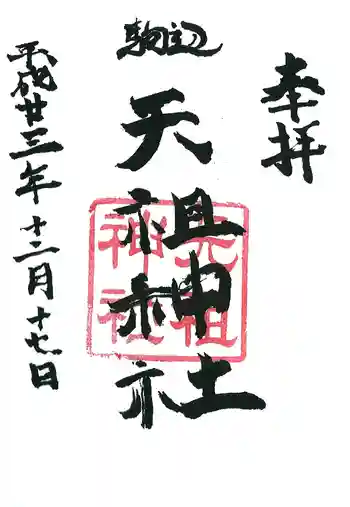 奉拝
駒込
天祖神社
天祖神社
平成廿三年十二月十七日